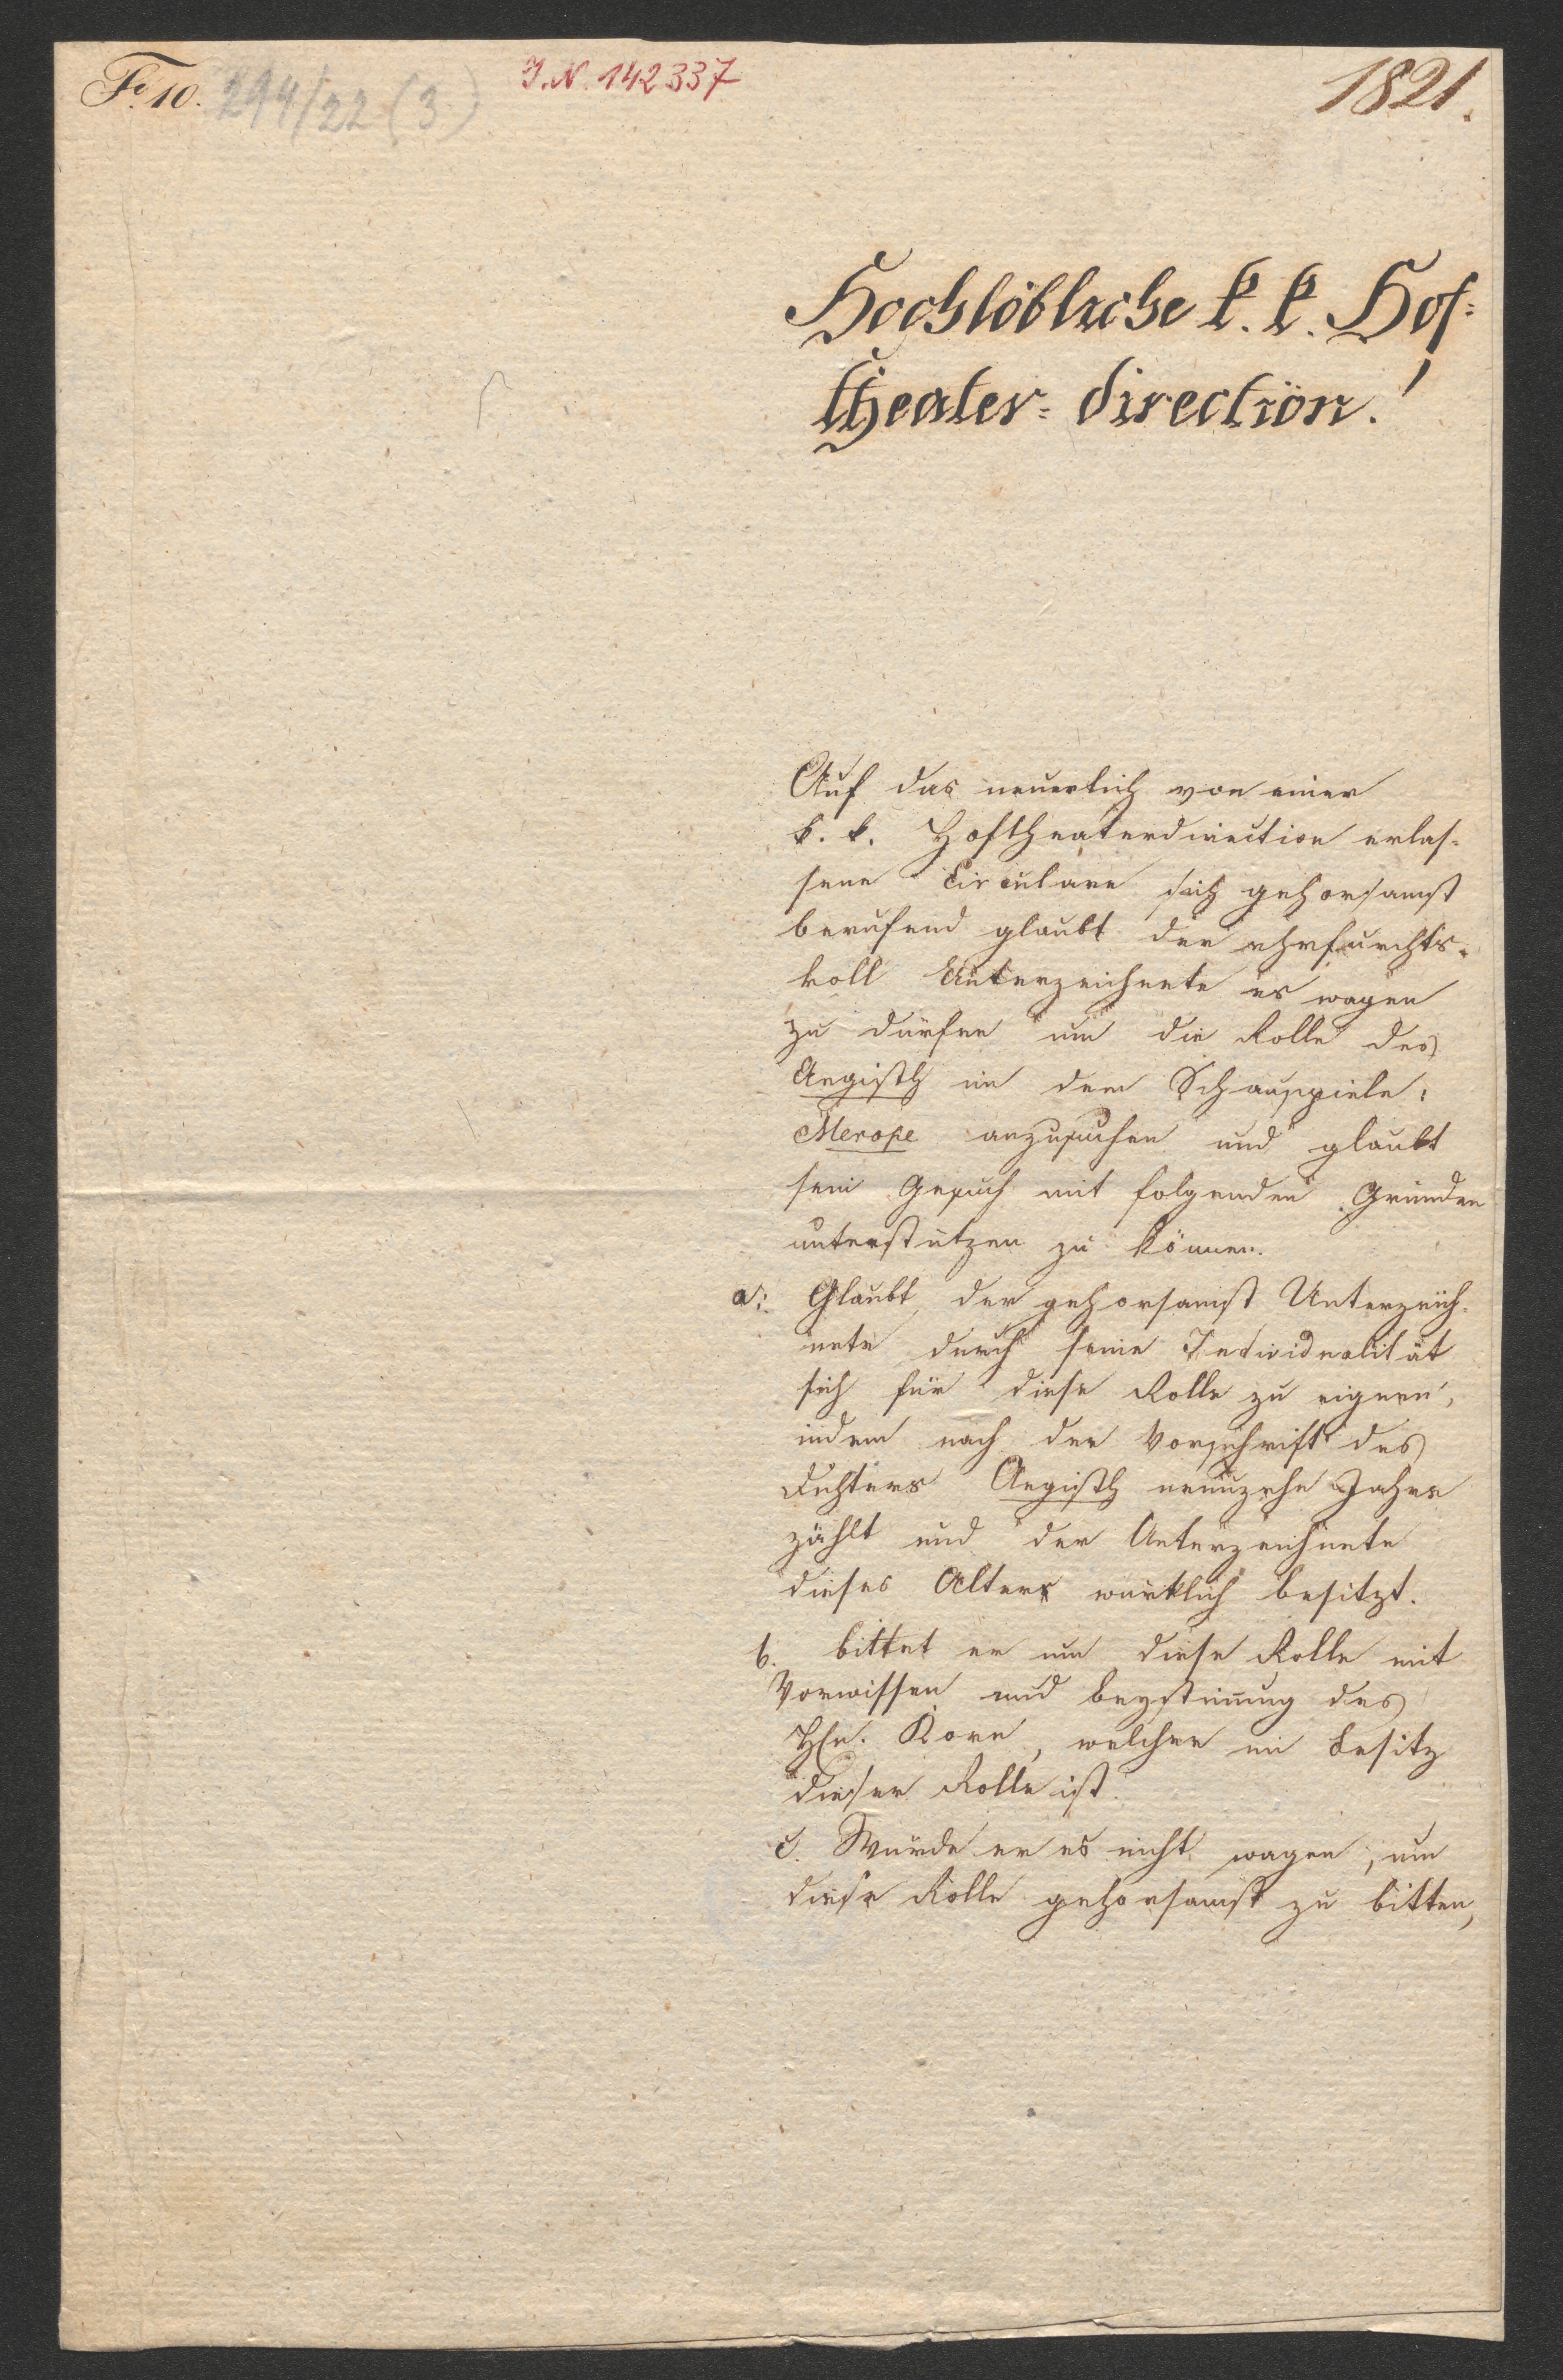 F. 10. 294/22 (3)
J.N. 142337
1821.
Hochlöbliche k. k. Hof-
theater-direction!
Auf das neuerlich von einer
k. k. Hoftheaterdirection erlas-
sene Circulare sich gehorsamst
berufend glaubt der ehrfurchts-
voll Unterzeichnete es wagen
zu dürfen um die Rolle des
Aegisth in dem Schauspiele:
Merope anzusuchen und glaubt
sein Gesuch mit folgenden Gründen
unterstützen zu können.
a: Glaubt der gehorsamst Unterzeich-
nete durch seine Individualität
sich für diese Rolle zu eignen,
indem nach der Vorschrift des
Dichters Aegisth neunzehn Jahre
zählt und der Unterzeichnete
dieses Alter würklich besitzt.
b. bittet er um diese Rolle mit
Vorwissen und Beystimmung des
Hrn. Korn, welcher im Besitz
dieser Rolle ist.
c. Würde er es nicht wagen, um
diese Rolle gehorsamst zu bitten,